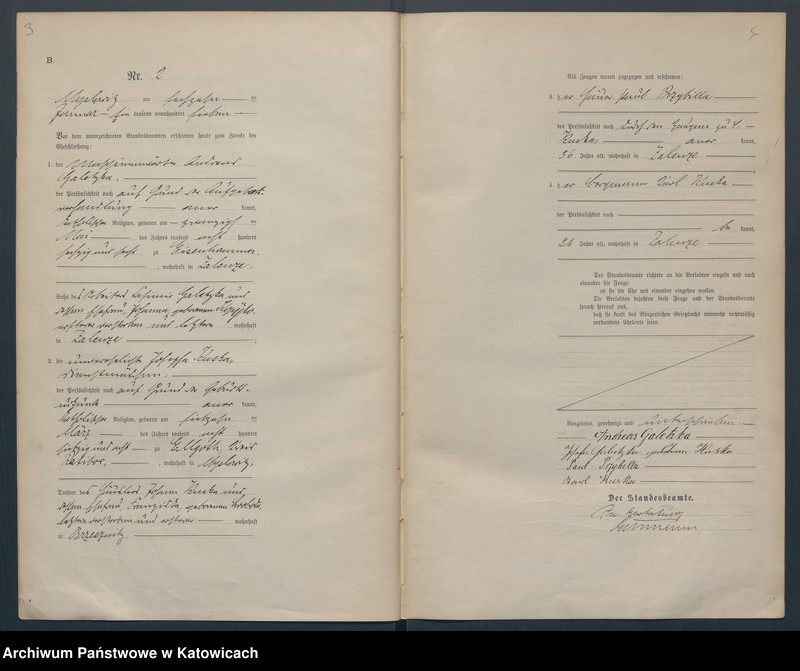 3
B.
Nr. 2
Myslowitz am sechszehn ten
Januar ein tausend neunhundert sieben
Vor dem unterzeichneten Standesbeamten erschienen heute zum Zwecke der
Eheschließung:
1. der Maschinenwärter Andreas
Galetzka,
der Persönlichkeit nach auf Grund der Aufgebots-
verhandlung aner kannt,
katholischer Religion, geboren am zwanzigsten
Mai des Jahres tausend acht hundert
zu Eisenhammer,
, wohnhaft in Zalenze
Sohn des Arbeiters Galetzka und
dessen Ehefrau, Johanna, geborenen
ersterer verstorben und letztere wohnhaft
in Zalenze ;
2. die unverehelichte Josefa Kuska,
Dienstmädchen,
der Persönlichkeit nach auf Grund der Geburts-
urkunde aner kannt,
katholischer Religion, geboren am siebzehn ten
März des Jahres tausend acht hundert
zu Ellgoth Kreis
Ratibor, , wohnhaft in Myslowitz,
Tochter des Häuslers Johann Kuska und
dessen Ehefrau, Franziska, geborenen
letztere verstorben und ersterer wohnhaft
in Brzesnitz.
Als Zeugen waren zugezogen und erschienen:
3. der Häuer Paul Przybilla
der Persönlichkeit nach durch den Zeugen zu 4.
Kuska, aner kannt,
36 Jahre alt, wohnhaft in Zalenze ;
4. der Bergmann Karl Kuska
der Persönlichkeit nach
be kannt,
26 Jahre alt, wohnhaft in Zalenze
Der Standesbeamte richtete an die Verlobten einzeln und nach
einander die Frage:
ob sie die Ehe mit einander eingehen wollen.
Die Verlobten bejahten diese Frage und der Standesbeamte
sprach hierauf aus,
daß sie kraft des Bürgerlichen Gesetzbuchs nunmehr rechtmäßig
verbundene Eheleute seien.
Vorgelesen, genehmigt und unterschrieben.
Andreas Galetzka
Josefa Galetzka geborene Kuska
Paul Przybilla
Karl Kuska
Der Standesbeamte.
In Vertretung
Archiwum Państwowe w Katowicach